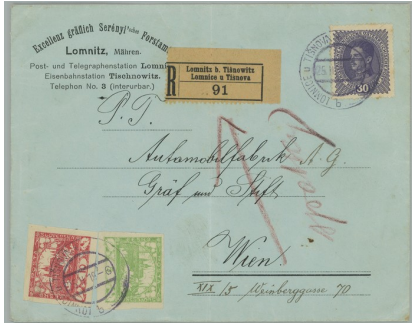 Excellenz gräflich Serényi'sches Forstamt
Lomnitz, Mähren.
Post- und Telegraphenstation Lomnitz
Eisenbahnstation Tischnowitz.
Telephon No. 3 (interurbar.)
R
Lomnitz b. Tišnowitz
Lomnice u Tišnova
91
30
P. T.
Automobilfabrik A. G.
Gräf und Stift
Wien
XIX/5 Weinberggasse 70